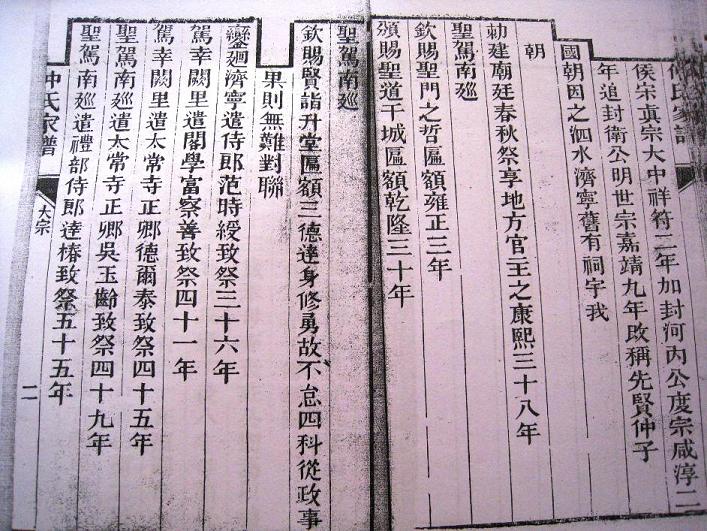 仲氏家譜
侯宋真宗大中祥符二年加封河內公度宗咸淳二
年追封衛公明世宗嘉靖九年改稱先賢仲子
國朝因之泗水濟寧舊有祠宇我
朝
勅建廟廷春秋祭享地方官主之康熙三十八年
聖駕南廵
欽賜聖門之哲匾額雍正三年
頒賜聖道干城匾額乾隆三十年
聖駕南廵
欽賜賢詣升堂匾額三德達身修勇故不怠四科從政事
果則無難對聯
鑾迴濟寧遣侍郎范時綬致祭三十六年
駕幸闕里遣閣學富察善致祭四十一年
駕幸闕里遣太常寺正卿德爾泰致祭四十五年
聖駕南廵遣太常寺正卿吳玉齡致祭四十九年
聖駕南廵遣禮部侍郎達椿致祭五十五年
仲氏家譜
大宗
二